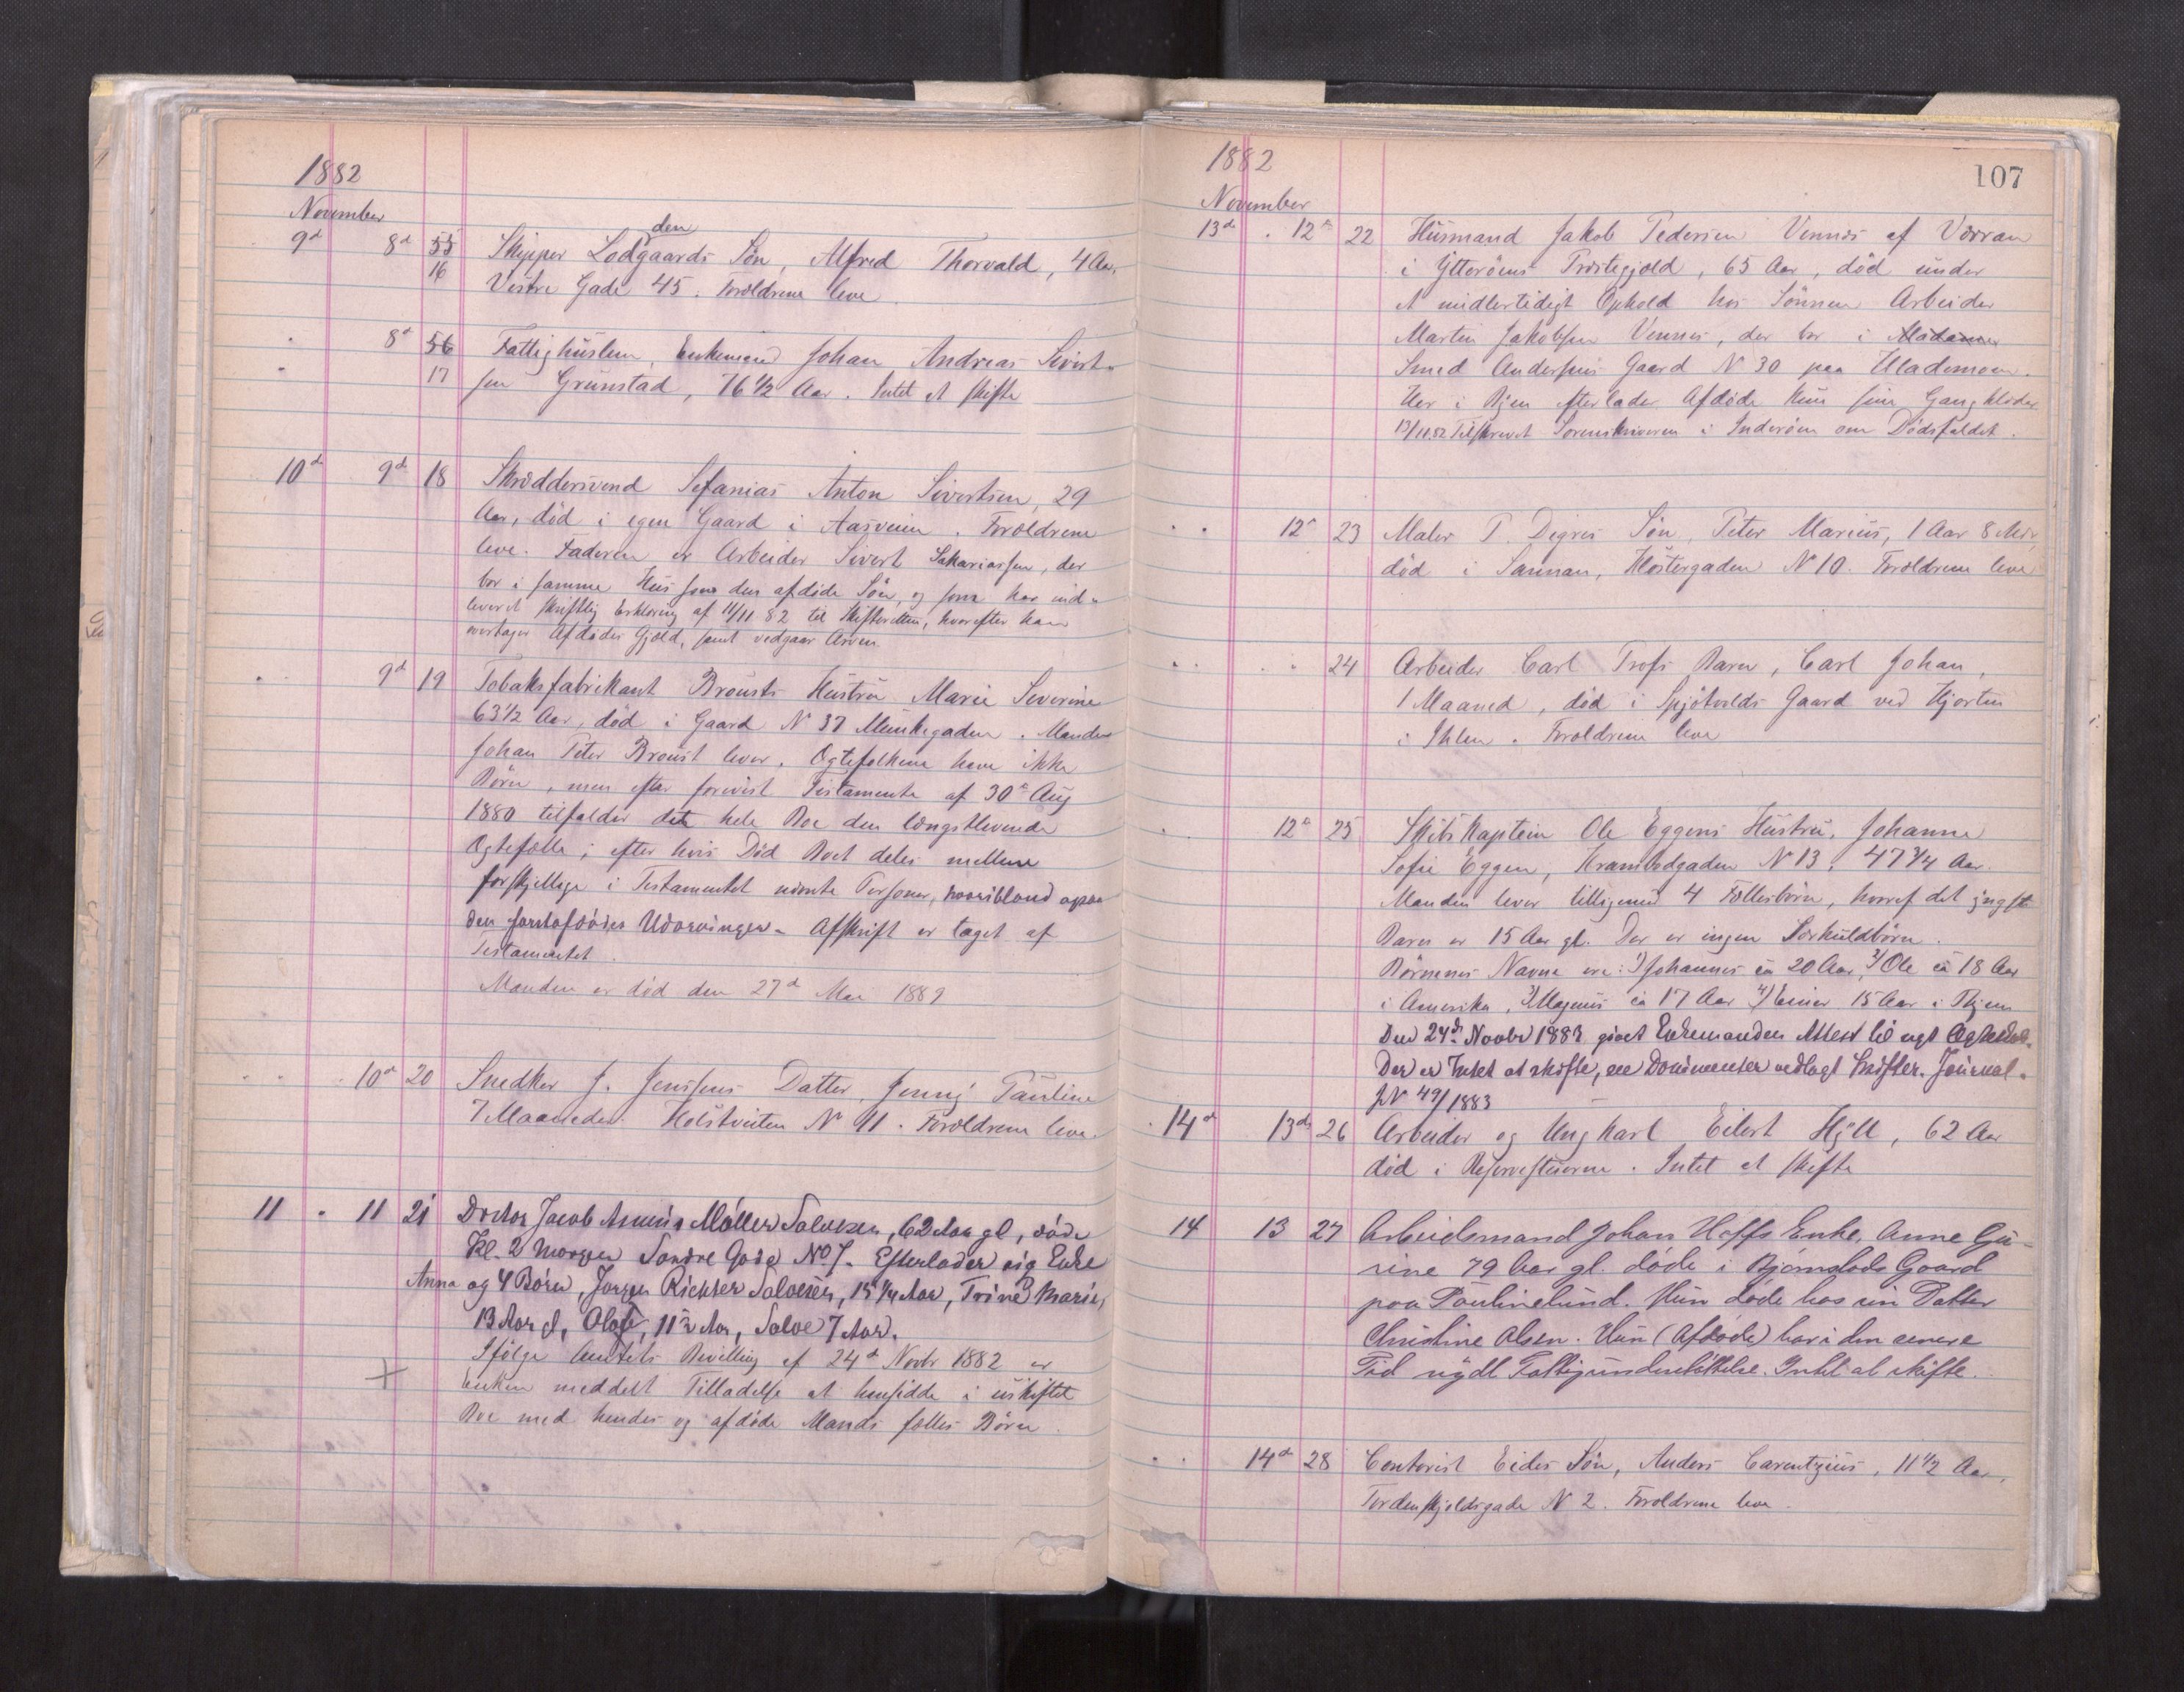 1882
November
9d 8d 55 Skipper Lodgaards Søn, Alfred Thorvald, 4 Aar,
den
16 Vestre Gade 45. Forældrene leve.
8d 56 Fattighuslem, Enkemand Johan Andreas Sivert-
17 sen Grünstad, 76 1/2 Aar. Intet at skifte
10d 9d 18 Skræddersvend Sefanias Anton Sivertsen, 29
Aar, död i egen Gaard i Aasveien. Forældrene
leve. Faderen er Arbeider Sivert Sakariassen, der
bor i samme Hus som den afdöde Sön, og som har ind-
leveret skriftlig Erklæring af 11/11 82 til Skifteretten, hvorefter han
overtager Afdödes Gjæld, samt vedgaar Arven.
9d 19 Tobaksfabrikant Brousts Hustru Marie Severine
63 1/2 Aar, död i Gaard N 37 Munkegaden. Manden
Johan Peter Broust lever. Ægtefolkene have ikke
Börn, men efter forevist Testamente af 30te Aug
1880 tilfalder det hele Boe den længstlevende
Ægtefælle; efter hvis Död Boet deles mellem
forskjellige i Testamentet nævnte Personer, hvoriblandt ogsaa
den förstafdödes Udarvinger. Afskrift er taget af
Testamentet.
Manden er död den 27d Mai 1889
10d 20 Snedker J. Jenssens Datter, Jenny Pauline
7 Maaneder. Holstveiten N 11. Forældrene leve.
11 11 21 Doctor Jacob Möller Salvesen, 62 Aar gl, döde
Kl. 2 Morgen Söndre Gade No 7. Efterlader sig Enke
Anna og 4 Börn, Jørgen Richter Salvesen, 15 1/4 Aar, Trine Marie,
13 Aar gl, Oluf, 11 1/2 Aar, Salve 7 Aar.
+ Ifölge Amtets Bevilling af 24d Novbr 1882 er
Enken meddelt Tilladelse at hensidde i uskiftet
Boe med hendes og afdöde Mands fælles Börn.
1882
107
November
13de 12te 22 Husmand Jakob Pedersen Vennes af Værran
i Ytteröens Præstegjeld, 65 Aar, död under
et midlertidigt Ophold hos Sönnen Arbeider
Martin Jakobsen Vennes, der bor i Madame
Smed Andersens Gaard N 30 paa Ilademoen.
Her i Byen efterlader Afdöde kun sine Gangklæder
13/11.82 Tilskrevet Sorenskriveren i Inderöen om Dödsfaldet.
12te 23 Maler P. Degres Sön, Peter Marius, 1 Aar 8 Mdr,
död i Sannan, Klostergaden N 10. Forældrene leve
24 Arbeider Carl Trofs Barn, Carl Johan,
1 Maaned, död i Spjötvolds Gaard ved Hjorten
i Ihlen. Forældrene leve
12te 25 Skibskaptein Ole Eggens Hustru, Johanne
Sofie Eggen, Krambodgaden N 13, 47 3/4 Aar.
Manden lever tilligemed 4 Fællesbörn, hvoraf det yngste
Barn er 15 Aar gl. Der er ingen Særkuldbörn.
Börnenes Navne ere: 1) Johannes ca 20 Aar, 2) Ole ca 18 Aar
i Amerika, 3) Magnus ca 17 Aar 4) Einar 15 Aar i Thjem
Den 24de Novbr 1883 givet Enkemanden Attest til nyt Ægteskab.
Der er Intet at skifte, se Documenter vedlagt Skifter. Journal.
JN 49/1883
14d 13de 26 Arbeider og Ungkarl Eilert Hyll, 62 Aar
död i Reservestuerne. Intet at skifte
14 13 27 Arbeidsmand Johan Hoffs Enke, Anne Gu-
rine 79 Aar gl. döde i Björnstads Gaard
paa Paulinelund. Hun döde hos sin Datter
Christine Olsen. Hun (Afdöde) har i den senere
Tid nydt Fattigunderstöttelse. Intet at skifte.
14de 28 Contorist Eides Sön, Anders Carentzius, 11 1/2 Aar,
Tordenskjoldsgade N 2. Forældrene leve.